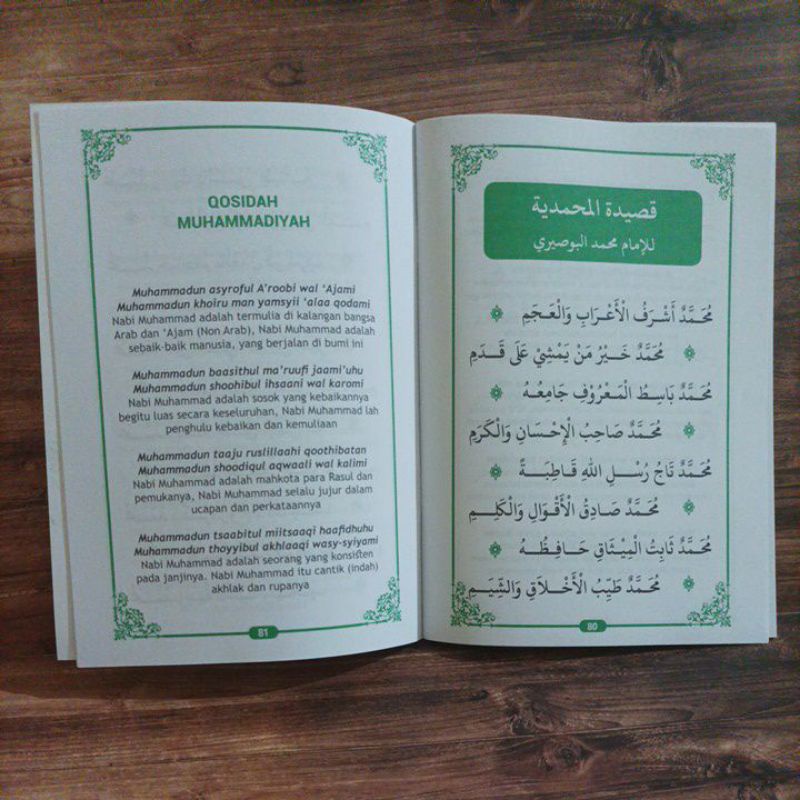 قصيدة المحمدية
للإمام محمد البوصيري
مُحَمَّدٌ أَشْرَفُ الْأَعْرَابِ وَالْعَجَمِ
مُحَمَّدٌ خَيْرُ مَنْ يَمْشِيْ عَلَى قَدَمِ
مُحَمَّدٌ بَاسِطُ الْمَعْرُوْفِ جَامِعُهُ
مُحَمَّدٌ صَاحِبُ الْإِحْسَانِ وَالْكَرَمِ
مُحَمَّدٌ تَاجُ رُسْلِ اللهِ قَاطِبَةً
مُحَمَّدٌ صَادِقُ الْأَقْوَالِ وَالْكَلِمِ
مُحَمَّدٌ ثَابِتُ الْمِيْثَاقِ حَافِظُهُ
مُحَمَّدٌ طَيِّبُ الْأَخْلَاقِ وَالشِّيَمِ
80
QOSIDAH
MUHAMMADIYAH
Muhammadun asyroful A'roobi wal 'Ajami
Muhammadun khoiru man yamsyii 'alaa qodami
Nabi Muhammad adalah termulia di kalangan bangsa
Arab dan 'Ajam (Non Arab), Nabi Muhammad adalah
sebaik-baik manusia, yang berjalan di bumi ini
Muhammadun baasithul ma'ruufi jaami'uhu
Muhammadun shoohibul ihsaani wal karomi
Nabi Muhammad adalah sosok yang kebaikannya
begitu luas secara keseluruhan, Nabi Muhammad lah
penghulu kebaikan dan kemuliaan
Muhammadun taaju ruslillaahi qoothibatan
Muhammadun shoodiqul aqwaali wal kalimi
Nabi Muhammad adalah mahkota para Rasul dan
pemukanya, Nabi Muhammad selalu jujur dalam
ucapan dan perkataannya
Muhammadun tsaabitul miitsaaqi haafidhuhu
Muhammadun thoyyibul akhlaaqi wasy-syiyami
Nabi Muhammad adalah seorang yang konsisten
pada janjinya. Nabi Muhammad itu cantik (indah)
akhlak dan rupanya
81